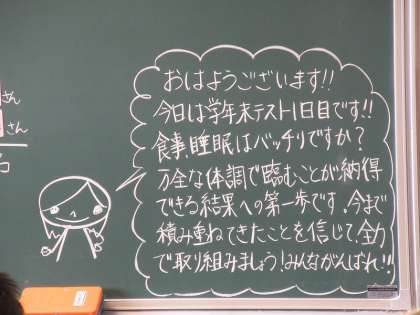 おはようございます!!
今日は学年末テスト1日目です!!
食事、睡眠はバッチリですか？
万全な体調で臨むことが納得
できる結果への第一歩です。今まで
積み重ねてきたことを信じて、全力
で取り組みましょう！みんながんばれ!!
さん
さん